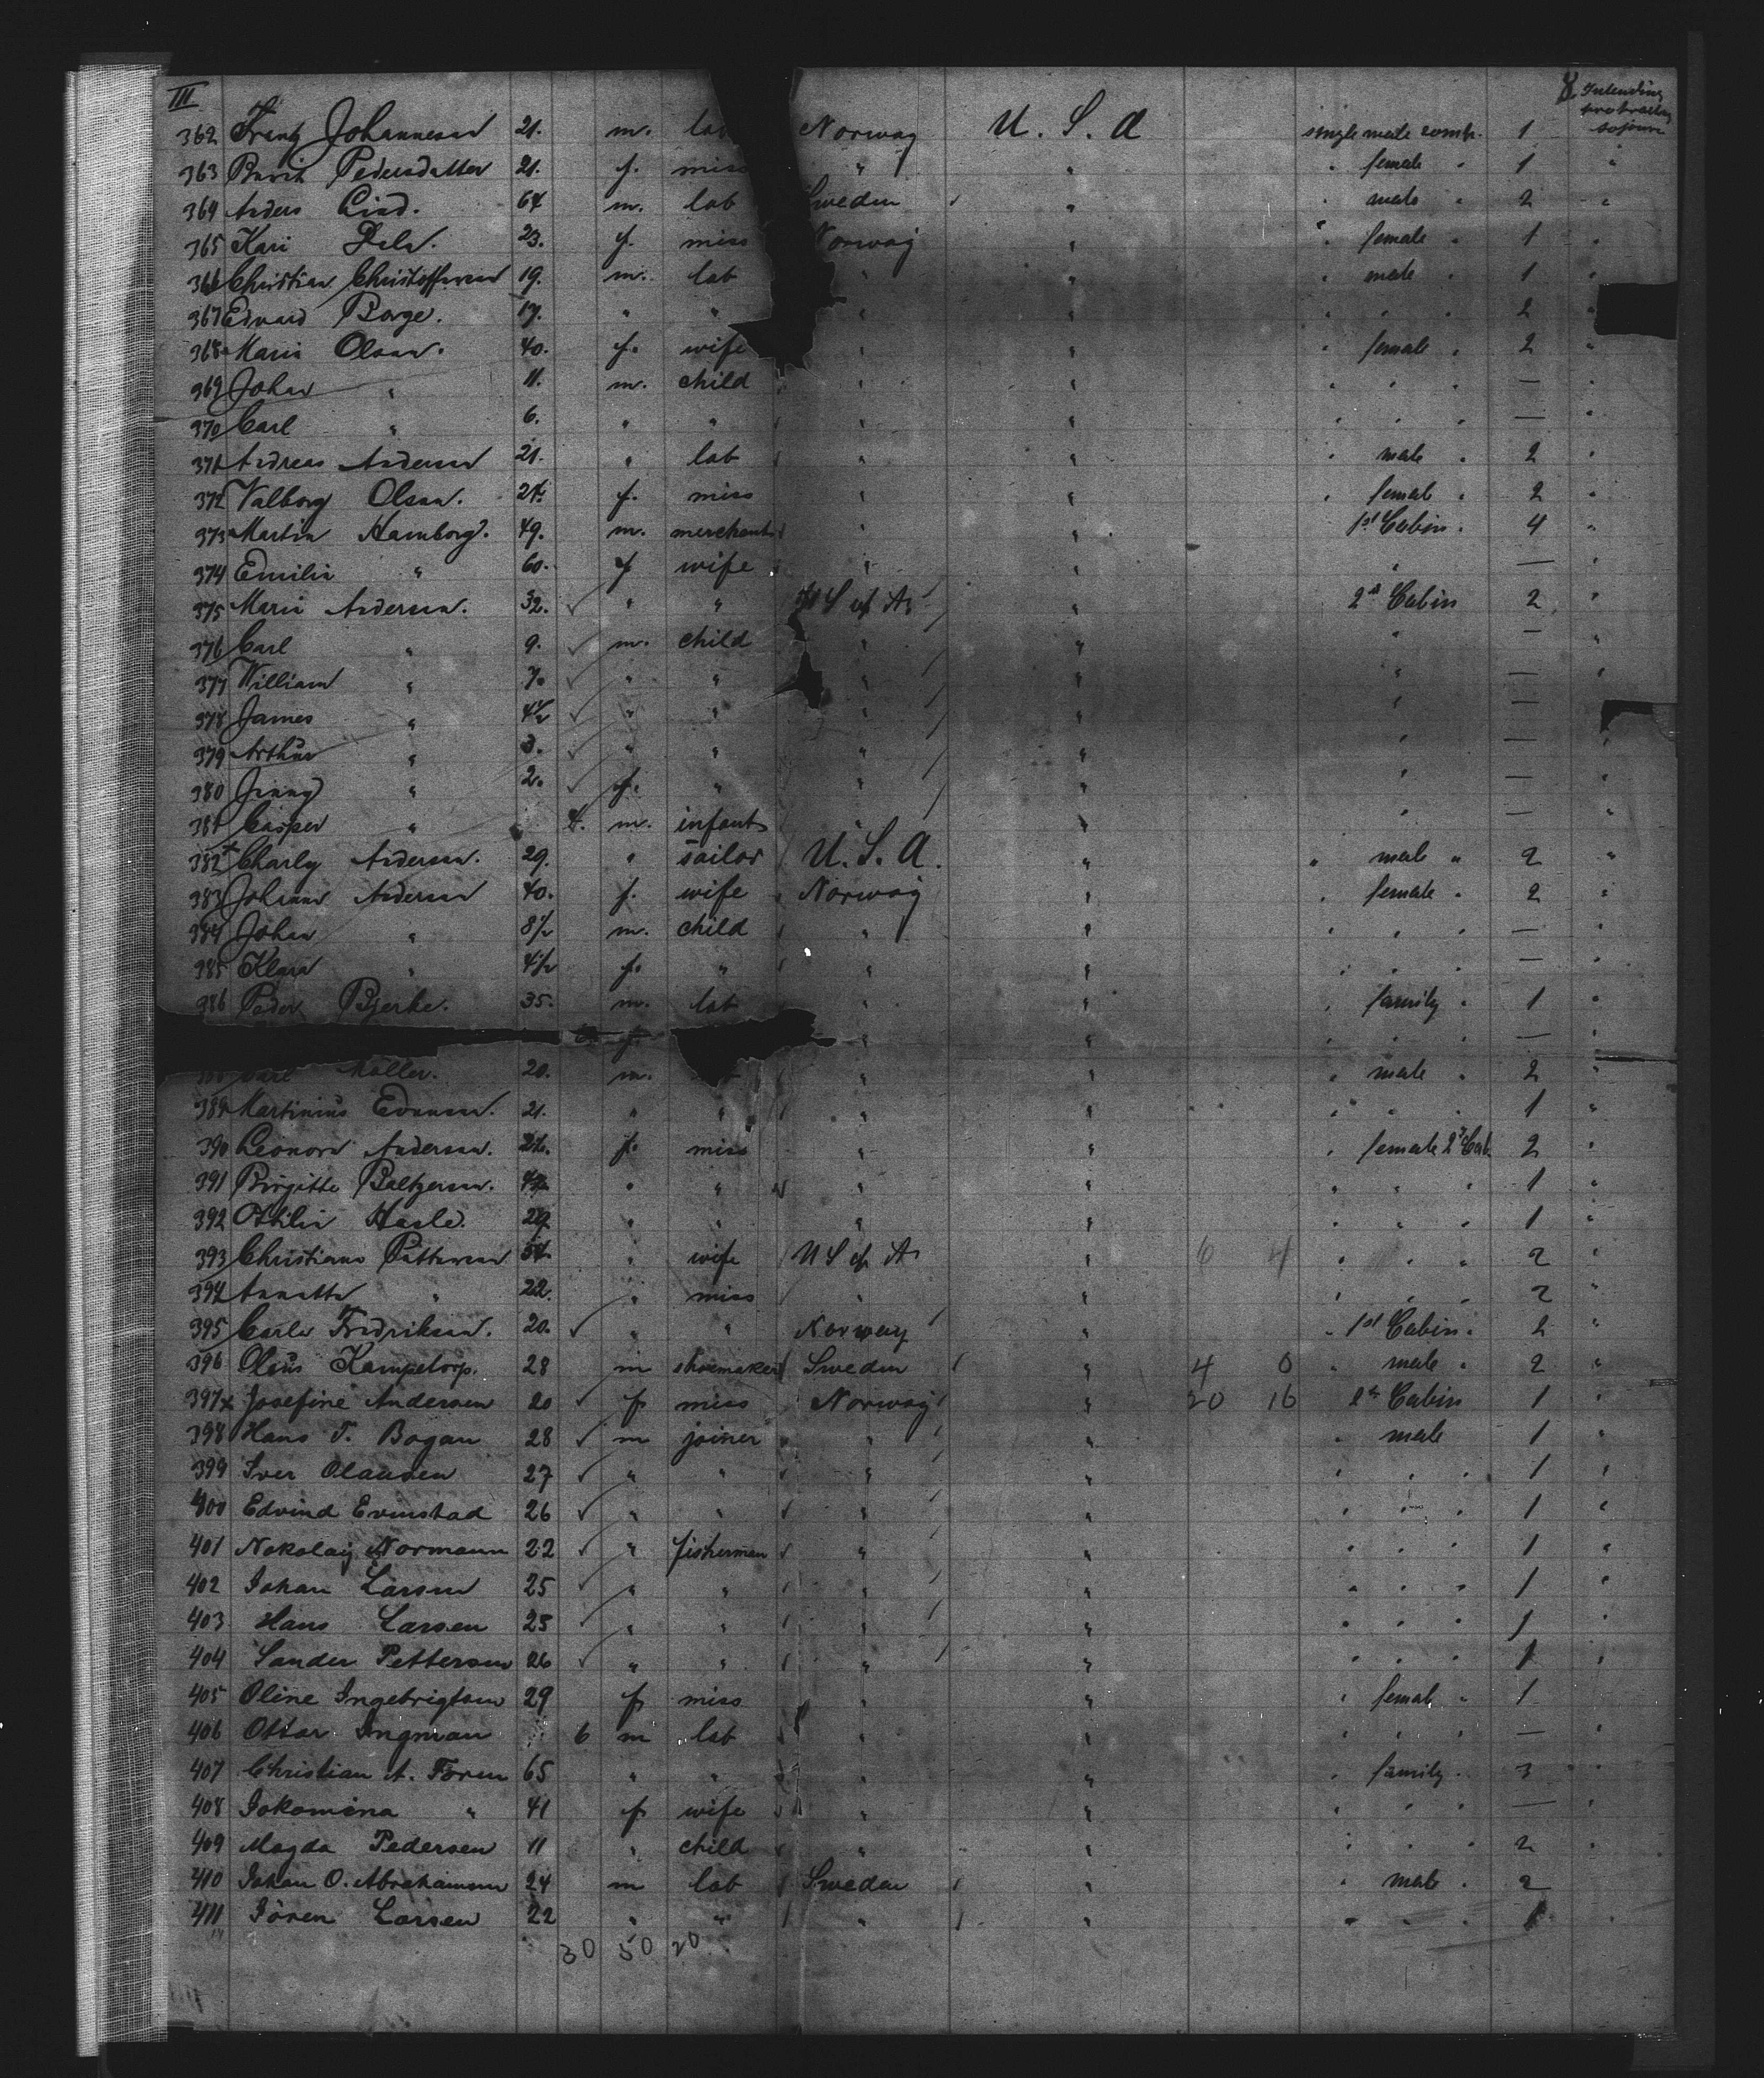 III 8 Intending protracted sojourn
362 Franz Johannesen 21. m. lab Norway U. S. A single male comp. 1
363 Berit Pedersdatter 21. f. miss " " " female " 1 "
364 Anders Lind. 64 m. lab Sweden " " male " 2 "
365 Kari Dela. 23. f. miss Norway " " female " 1 "
366 Christian Christoffersen 19. m. lab " " " male " 1 "
367 Edvard Borge. 17. " " " " " " " 2 "
368 Marie Olsen. 40. f. wife " " " female " 2 "
369 Johan " 11. m. child " " " " " — "
370 Carl " 6. " " " " " " " — "
371 Andreas Andersen 21. " lab " " " male " 2 "
372 Valborg Olsen. 24. f. miss " " " female " 2 "
373 Martin Hamborg. 49. m. merchant " " 1st Cabin. 4 "
374 Emilie " 60. f wife " " " — "
375 Marie Andersen. 32. " " U S of A " 2d Cabin 2 "
376 Carl " 9. m. child " " " — "
377 William " 7. " " " " " — "
378 James " 4½ " " " " " —
379 Arthur " 3. " " " " " — "
380 Jenny " 2. f. " " " " — "
381 Casper " 4. m. infant " " " — "
382 Charly Andersen. 29. " sailor U. S. A. " " male " 2 "
383 Johanne Andersen 40. f. wife Norway " " female " 2 "
384 Johan " 8½ m. child " " " " " — "
385 Klara " 4½ f. " " " " " " — "
386 Peder Bjerke. 35. m. lab " " " family " 1 "
f " " " " " — "
Carl Möller. 20. m. " " " male " 2 "
389 Martinius Evensen. 21. " " " " " " " 1 "
390 Leonora Andersen. 24. f. miss " " " female 2d Cab. 2 "
391 Birgitte Baltzersen. " " " " " " " 1 "
392 Othilie Hasle. 29 " " " " " " " 1 "
393 Christiane Pettersen 54. " wife U S of A " 6 4 " " " 2 "
394 Annette " 22. " miss " " " " " 2 "
395 Carla Fredriksen. 20. " " Norway " " 1st Cabin. 2 "
396 Olaus Kampetorp. 28 m shoemaker Sweden " 4 0 " male " 2 "
397 Josefine Andersen 20 f miss Norway " 20 16 2d Cabin 1 "
398 Hans T. Bogan 28 m joiner " " " male 1 "
399 Iver Olausen 27 " " " " " " " 1 "
400 Edvind Evenstad 26 " " " " " " " 1 "
401 Nokolaij Normann 22 " fisherman " " " " " 1 "
402 Johan Larsen 25 " " " " " " " 1 "
403 Hans Larsen 25 " " " " " " " 1 "
404 Sander Pettersen 26 " " " " " " " 1 "
405 Oline Ingebrigtsen 29 f miss " " " female " 1
406 Ottar Ingman 6 m lab " " " " " — "
407 Christian A. Foren 65 " " " " " family " 3 "
408 Jokomina " 41 f wife " " " " " — "
409 Magda Pedersen 11 " child " " " " " 2 "
410 Johan O. Abrahamsen 24 m lab Sweden " " male " 2
411 Sören Larsen 22 " " " " " " " 1 "
30 50 20